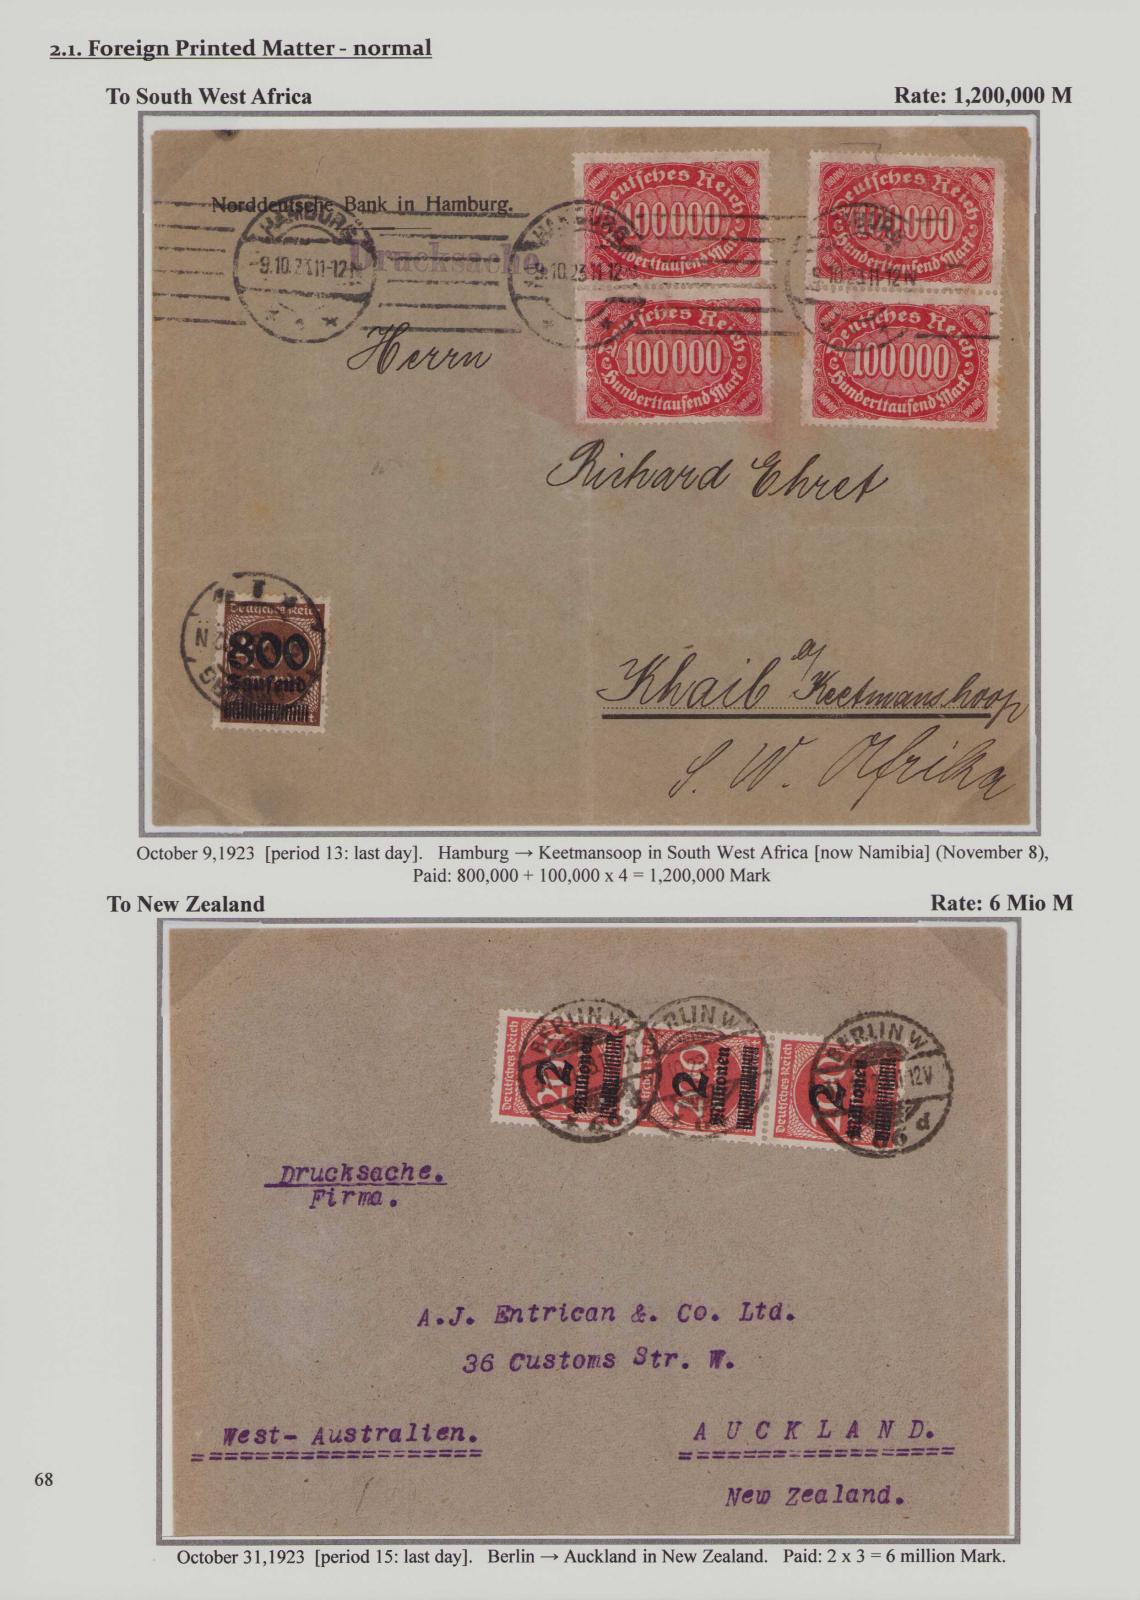 2.1. Foreign Printed Matter - normal
To South West Africa
Rate: 1,200,000 M
Norddeutsche Bank in Hamburg.
HAMBURG
9.10.23 11-12 N
Drucksache
HAMBURG
9.10.23 11-12 N
9.10.23 11-12 N
Deutsches Reich
100000
Hunderttausend Mark
Deutsches Reich
100000
Hunderttausend Mark
Deutsches Reich
100000
Hunderttausend Mark
Deutsches Reich
100000
Hunderttausend Mark
Herrn
Richard Ehret
Deutsches Reich
800
Tausend
Khaib a/ Keetmanshoop
S. W. Afrika
October 9,1923 [period 13: last day]. Hamburg → Keetmansoop in South West Africa [now Namibia] (November 8),
Paid: 800,000 + 100,000 x 4 = 1,200,000 Mark
To New Zealand
Rate: 6 Mio M
BERLIN W
BERLIN W
BERLIN W
12V
d
Deutsches Reich
200
2
Millionen
Deutsches Reich
200
2
Millionen
Deutsches Reich
200
2
Millionen
Drucksache.
Firma.
A.J. Entrican &. Co. Ltd.
36 Customs Str. W.
West- Australien.
AUCKLAND.
New Zealand.
68
October 31,1923 [period 15: last day]. Berlin → Auckland in New Zealand. Paid: 2 x 3 = 6 million Mark.